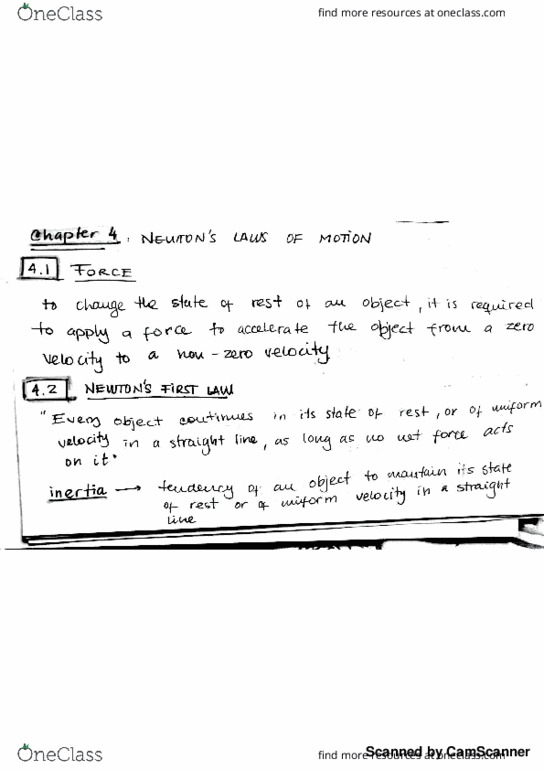 OneClass
find more resources at oneclass.com
Chapter 4 : NEWTON'S LAWS OF MOTION
4.1 FORCE
to change the state of rest of an object, it is required
to apply a force to accelerate the object from a zero
velocity to a non-zero velocity
4.2 NEWTON'S FIRST LAW
"Every object continues in its state of rest, or of uniform
velocity in a straight line, as long as no net force acts
on it"
inertia → tendency of an object to maintain its state
of rest or of uniform velocity in a straight
line
OneClass
find more resources at oneclass.com
Scanned by CamScanner